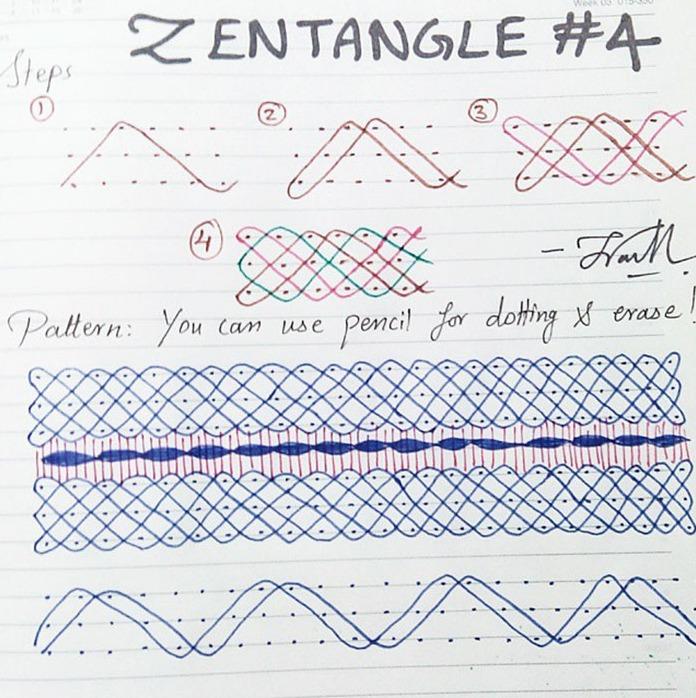 ZENTANGLE #4
Steps
1
2
3
4
Pattern: You can use pencil for dotting & erase!